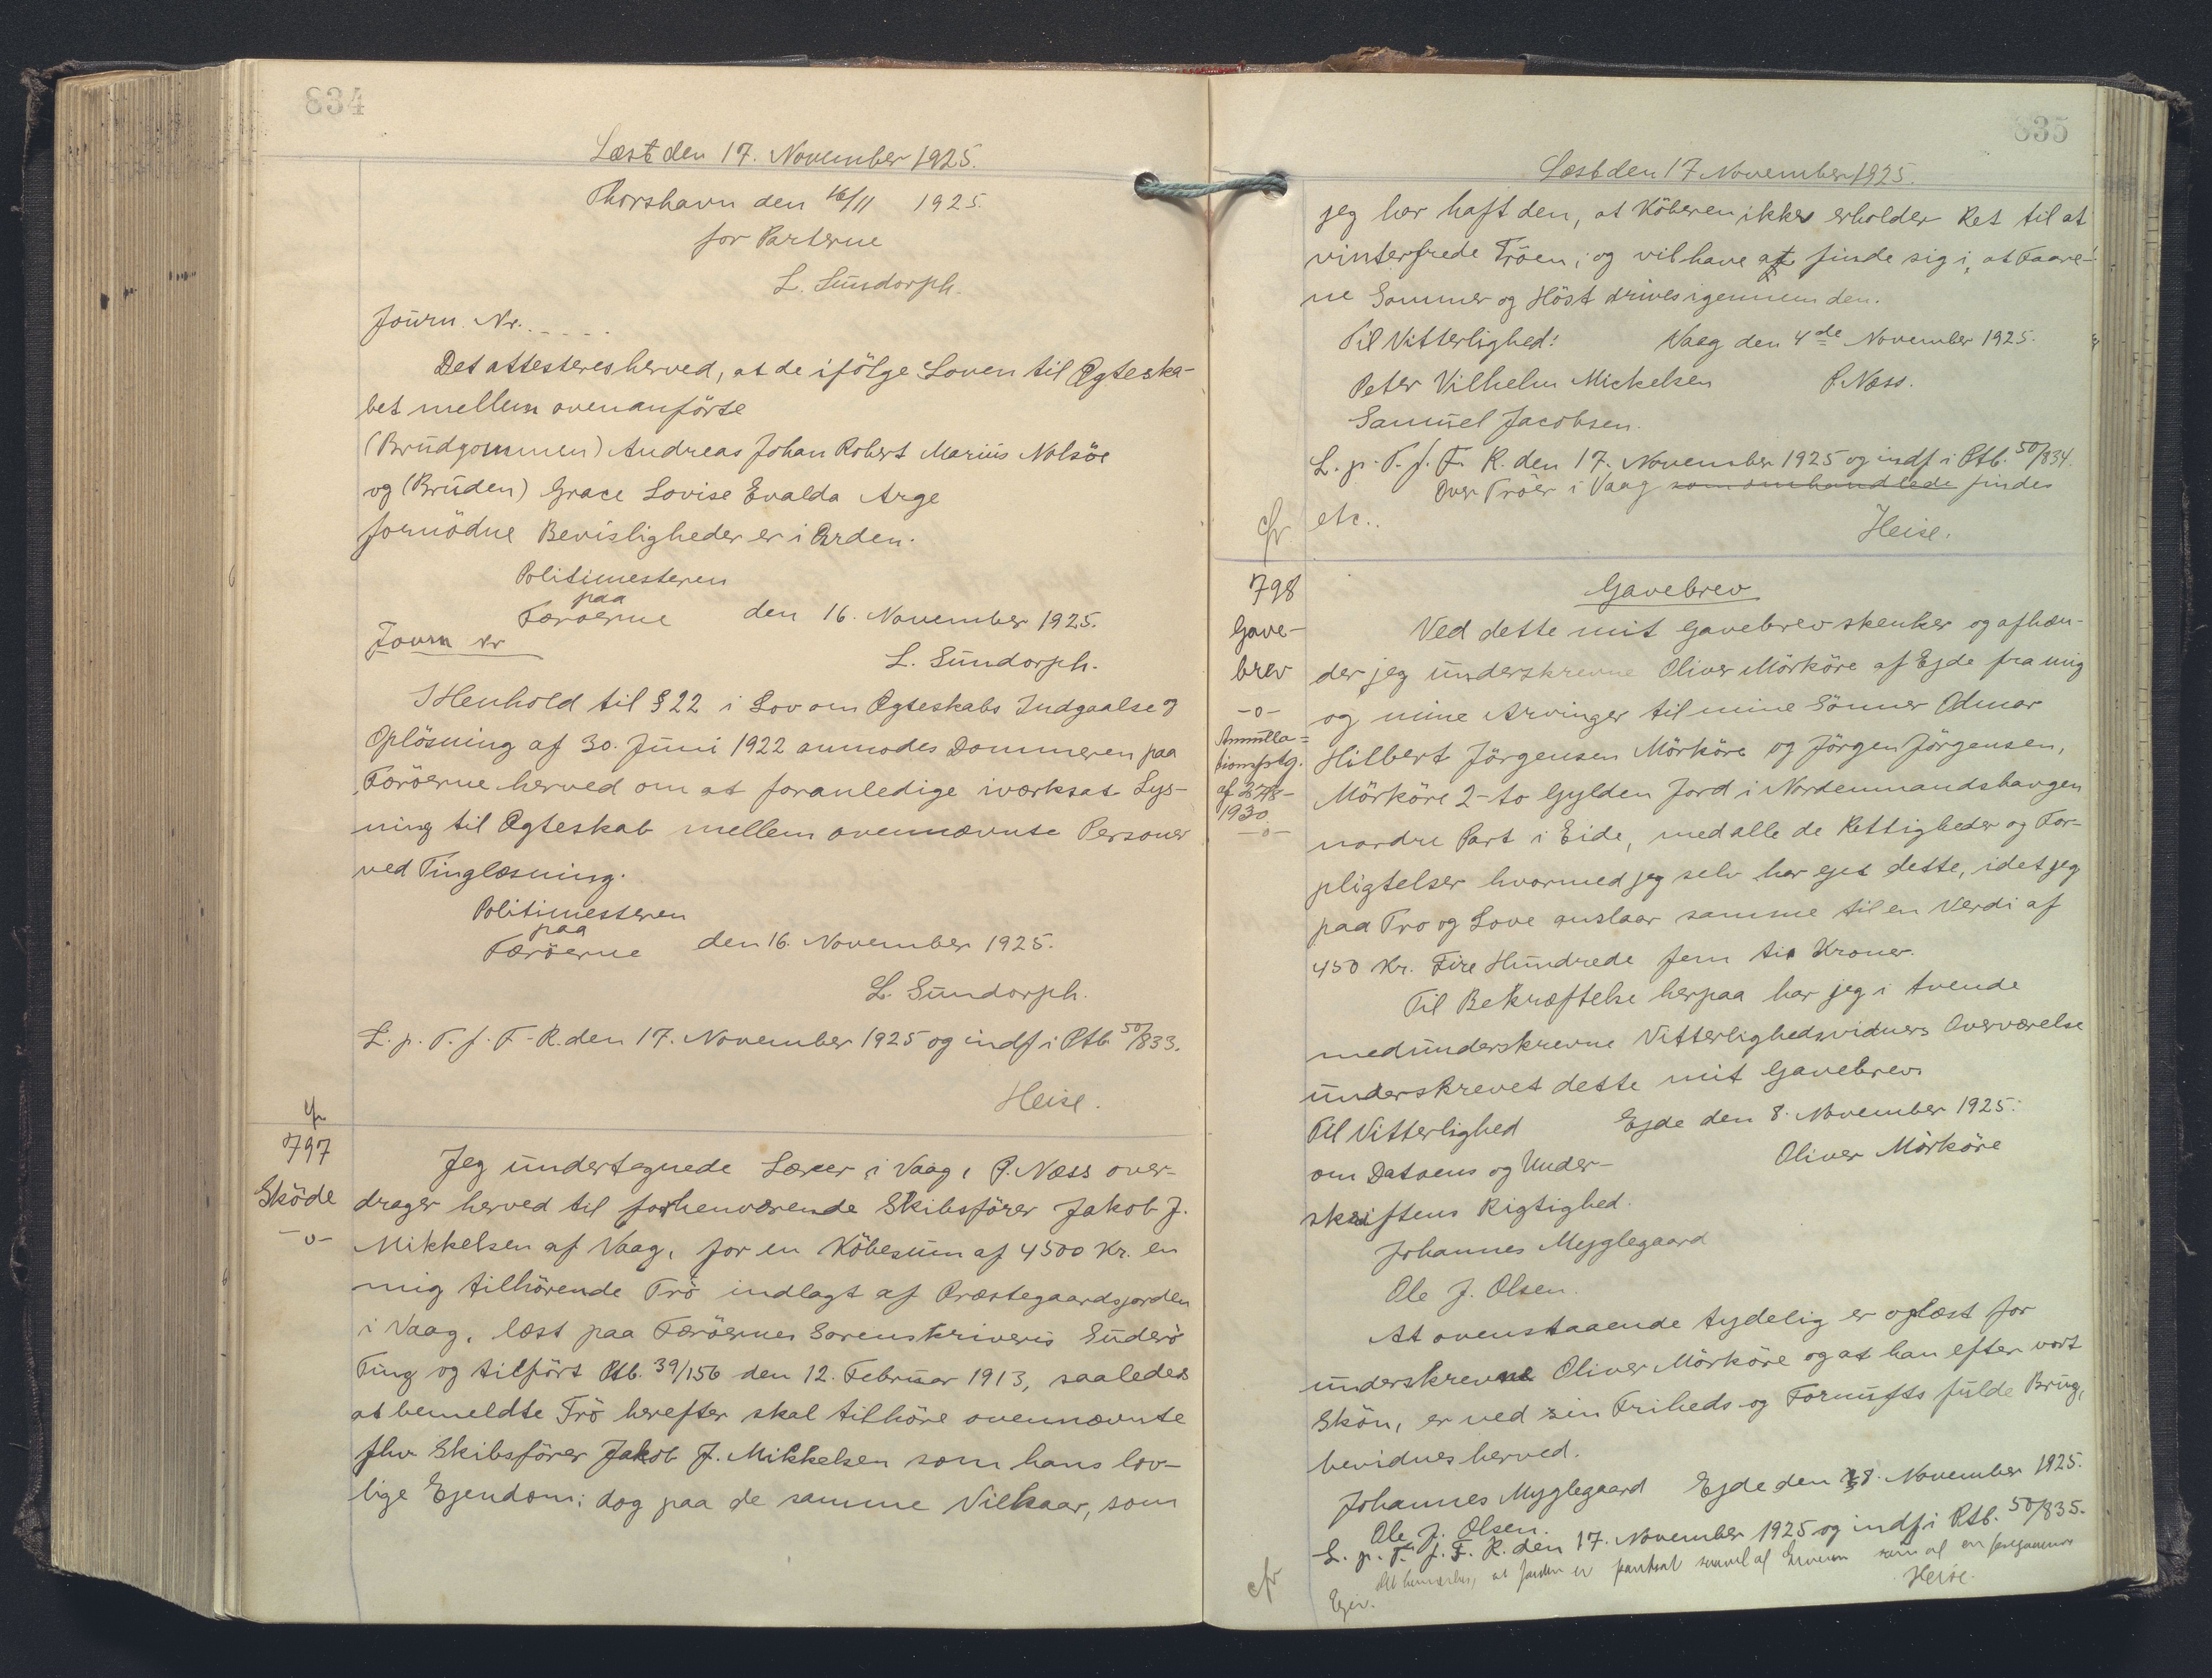 834
Læst den 17. November 1925.
Thorshavn den 16/11 1925.
for Parterne
L. Sundorph.
Journ. Nr. . . . . .
Det attesteres herved, at de ifölge Loven til Ægteska-
bet mellem ovenanförte
(Brudgommen) Andreas Johan Robert Marius Nolsöe
og (Bruden) Grace Lovise Evalda Arge
fornödne Bevisligheder er i Orden.
Politimesteren
paa
Færöerne den 16. November 1925.
Journ nr
L. Sundorph.
I Henhold til § 22 i Lov om Ægteskabs Indgaaelse og
Oplösning af 30. Juni 1922 anmodes Dommeren paa
Færöerne herved om at foranledige iværksat Lys-
ning til Ægteskab mellem ovennævnte Personer
ved Tinglæsning.
Politimesteren
paa
Færöerne den 16. November 1925.
L. Sundorph.
L. p. T. f. F. R. den 17. November 1925 og indf i Ptb. 50/833.
Heise.
cfr
797
Sköde
-o-
Jeg undertegnede Lærer i Vaag, P. Næss over-
drager herved til forhenværende Skibsförer Jakob J.
Mikkelsen af Vaag, for en Köbesum af 4500 Kr. en
mig tilhörende Trö indlagt af Præstegaardsjorden
i Vaag, læst paa Færöernes Sorenskriveris Suderö
Ting og tilfört Ptb. 39/156 den 12. Februar 1913, saaledes
at bemeldte Trö herefter skal tilhöre ovennævnte
fhv Skibsförer Jakob J. Mikkelsen som hans lov-
lige Ejendom; dog paa de samme Vilkaar, som
835
Læst den 17 November 1925.
jeg har haft den, at Köberen ikke erholder Ret til at
vinterfrede Tröen; og vil have at finde sig i, at Faare-
ne Sommer og Höst drives igennem den.
Til Vitterlighed: Vaag den 4de November 1925.
Peter Vilhelm Mickelsen P. Næss.
Samuel Jacobsen.
L. p. T. f. F. R. den 17. November 1925 og indf i Ptb. 50/834.
Over Tröer i Vaag som omhandlede findes
cfr etc..
Heise.
798
Gave-
brev
-o-
Annulla-
tionsptg.
af 27/8-
1930
-o-
Gavebrev
Ved dette mit Gavebrev skenker og afhæn-
der jeg underskrevne Oliver Mörköre af Ejde fra mig
og mine Arvinger til mine Sönner Odmar
Hilbert Jörgensen Mörköre og Jörgen Jörgensen,
Mörköre 2-to Gylden Jord i Nordenmandshaugen
nordre Part i Eide, med alle de Rettigheder og For-
pligtelser hvormed jeg selv har ejet dette, idet jeg
paa Tro og Love anslaar samme til en Verdi af
450 Kr. Fire Hundrede fem ti Kroner.
Til Bekræftelse herpaa har jeg i tvende
medunderskrevne Vitterlighedsvidners Overværelse
underskrevet dette mit Gavebrev
Til Vitterlighed Ejde den 8. November 1925.
om Datoens og Under- Oliver Mörköre
skriftens Rigtighed.
Johannes Myglegaard
Ole J. Olsen.
At ovenstaaende tydelig er oplæst for
underskrevne Oliver Mörköre og at han efter vort
Skön, er ved sin Friheds og Fornufts fulde Brug,
bevidnes herved.
Johannes Myglegaard Ejde den 8. November 1925.
Ole J. Olsen.
L. p. T. f. F. R. den 17. November 1925 og indf i Ptb. 50/835.
Det bemærkes, at Jorden er pantsat saavel af som af en foregaaende
cfr Ejer.
Heise.